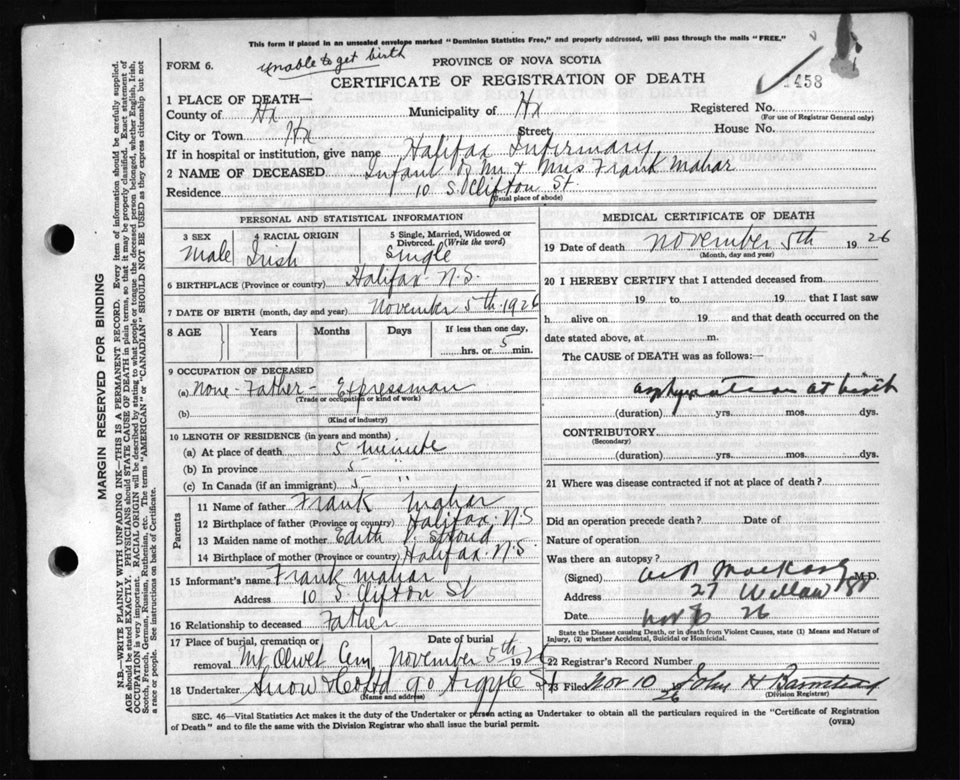 This form if placed in an unsealed envelope marked "Dominion Statistics Free," and properly addressed, will pass through the mails "FREE."
FORM 6.
unable to get birth
PROVINCE OF NOVA SCOTIA
CERTIFICATE OF REGISTRATION OF DEATH
1458
1 PLACE OF DEATH—
County of Hx Municipality of Hx Registered No.
(For use of Registrar General only)
City or Town Hx Street House No.
If in hospital or institution, give name Halifax Infirmary
2 NAME OF DECEASED Infant of Mr & Mrs Frank Mahar
Residence 10 S. Clifton St.
(Usual place of abode)
PERSONAL AND STATISTICAL INFORMATION
3 SEX 4 RACIAL ORIGIN 5 Single, Married, Widowed or Divorced. (Write the word)
Male Irish Single
6 BIRTHPLACE (Province or country) Halifax N.S.
7 DATE OF BIRTH (month, day and year) November 5th 1926
8 AGE Years Months Days If less than one day,
hrs. or 5 min.
9 OCCUPATION OF DECEASED
(a) None - Father - Expressman
(Trade or occupation or kind of work)
(b)
(Kind of industry)
10 LENGTH OF RESIDENCE (in years and months)
(a) At place of death 5 minute
(b) In province 5 "
(c) In Canada (if an immigrant) 5
Parents
11 Name of father Frank Mahar
12 Birthplace of father (Province or country) Halifax, N.S
13 Maiden name of mother Edith
14 Birthplace of mother (Province or country) Halifax. N.S.
15 Informant's name Frank Mahar
Address 10 S Clifton St
16 Relationship to deceased Father
17 Place of burial, cremation or removal Date of burial
Mt Olivet Cem November 5th 1926
18 Undertaker Snow & Co Ltd 90 Argyle St
(Name and address)
MEDICAL CERTIFICATE OF DEATH
19 Date of death November 5th 1926
(Month, day and year)
20 I HEREBY CERTIFY that I attended deceased from
19 to 19 that I last saw
h alive on 19 and that death occurred on the
date stated above, at m.
The CAUSE of DEATH was as follows:
asphyxiation at birth
(duration) yrs. mos. dys.
CONTRIBUTORY
(Secondary)
(duration) yrs. mos. dys.
21 Where was disease contracted if not at place of death?
Did an operation precede death? Date of
Nature of operation
Was there an autopsy?
(Signed) M.D.
Address 27 Willow St
Date Nov 6 26
State the Disease causing Death, or in death from Violent Causes, state (1) Means and Nature of Injury, (2) whether Accidental, Suicidal or Homicidal.
22 Registrar's Record Number
23 Filed Nov 10 26 John H Barnstead
(Division Registrar)
SEC. 46—Vital Statistics Act makes it the duty of the Undertaker or person acting as Undertaker to obtain all the particulars required in the "Certificate of Registration
of Death" and to file the same with the Division Registrar who shall issue the burial permit.
(OVER)
MARGIN RESERVED FOR BINDING
N.B.—WRITE PLAINLY WITH UNFADING INK—THIS IS A PERMANENT RECORD. Every item of information should be carefully supplied.
AGE should be stated EXACTLY. PHYSICIANS should STATE CAUSE OF DEATH in plain terms, so that it may be properly classified. Exact statement of
OCCUPATION is very important. RACIAL ORIGIN will be described by stating to what people or tongue the deceased person belonged, whether English, Irish,
Scotch, French, German, Russian, Ruthenian, etc. The terms "AMERICAN" or "CANADIAN" SHOULD NOT BE USED as they express citizenship but not
a race or people. See instructions on back of Certificate.